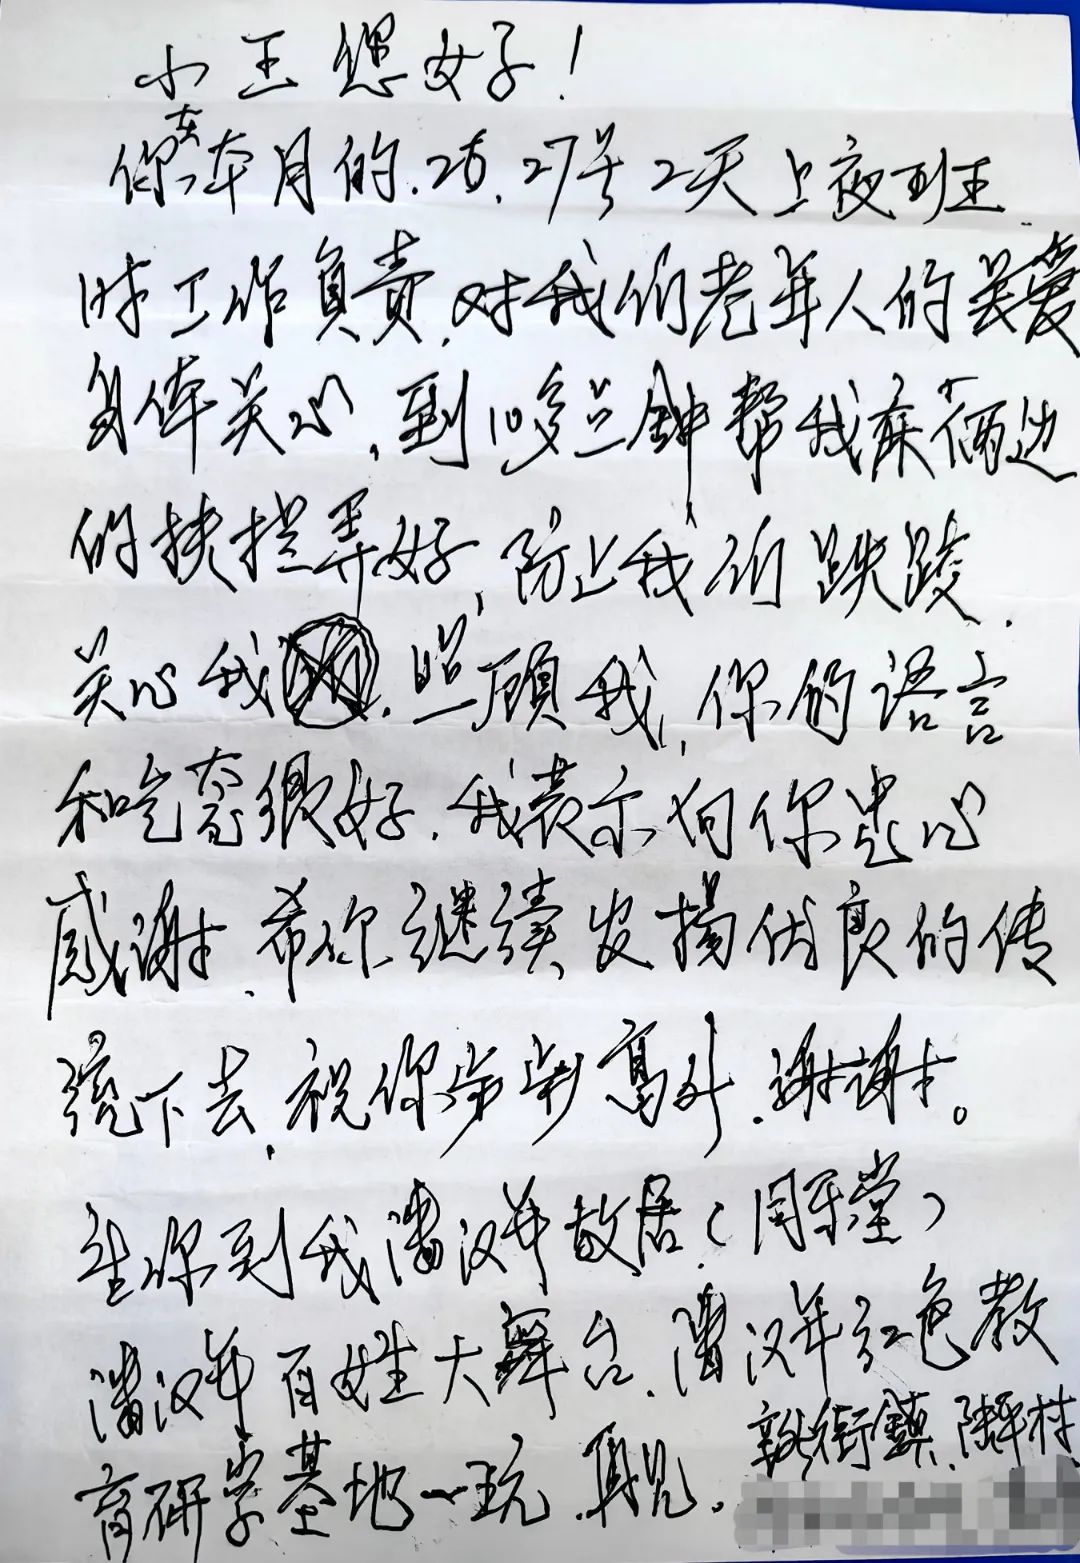 小王您好！
你在本月的.26.27号2天上夜班
时工作负责,对我们老年人的关爱
身体关心,到10多点钟帮我床俩边
的扶拦弄好,防止我们跌跤.
关心我.照顾我,你的语言
和笔套很好.我表示向你忠心
感谢.希你继续发扬优良的传
统下去,祝你步步高升.谢谢。
望你到我潘汉年故居(同乐堂)
潘汉年百姓大舞台.潘汉年红色教
育研学基地一玩.再见.
街镇.陆平村